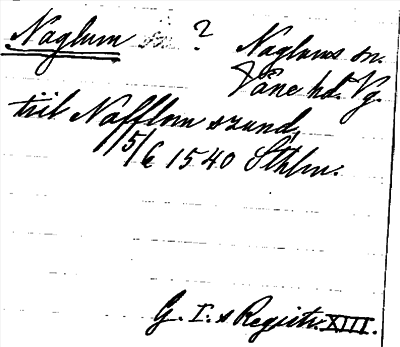 Naglum sn ? Naglums sn.
Väne hd. Vg.
till Nafflom szund,
15/6 1540 Sthlm.
G. I:s Registr. XIII.